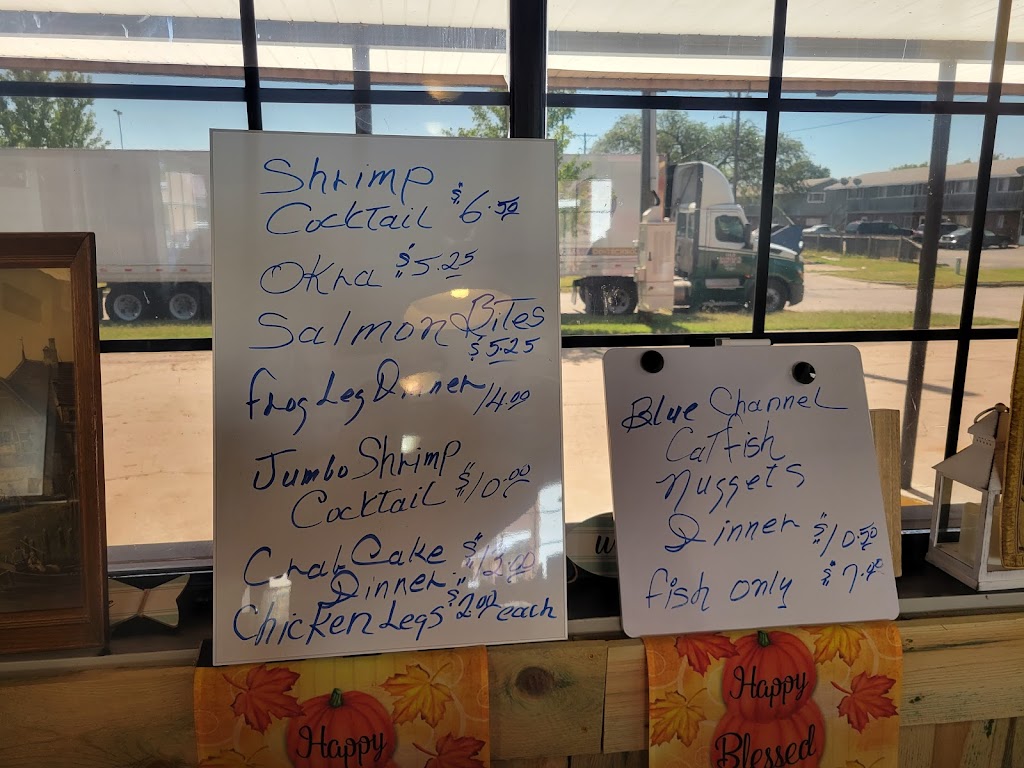 Shrimp
Cocktail $6.50
Okra $5.25
Salmon Bites
$5.25
Frog Leg Dinner 14.00
Jumbo Shrimp
Cocktail $10.00
Crab Cake
Dinner
Chicken Legs $2.00 each
Blue Channel
Catfish
Nuggets
Dinner $10.50
fish only
Happy
Happy
Blessed